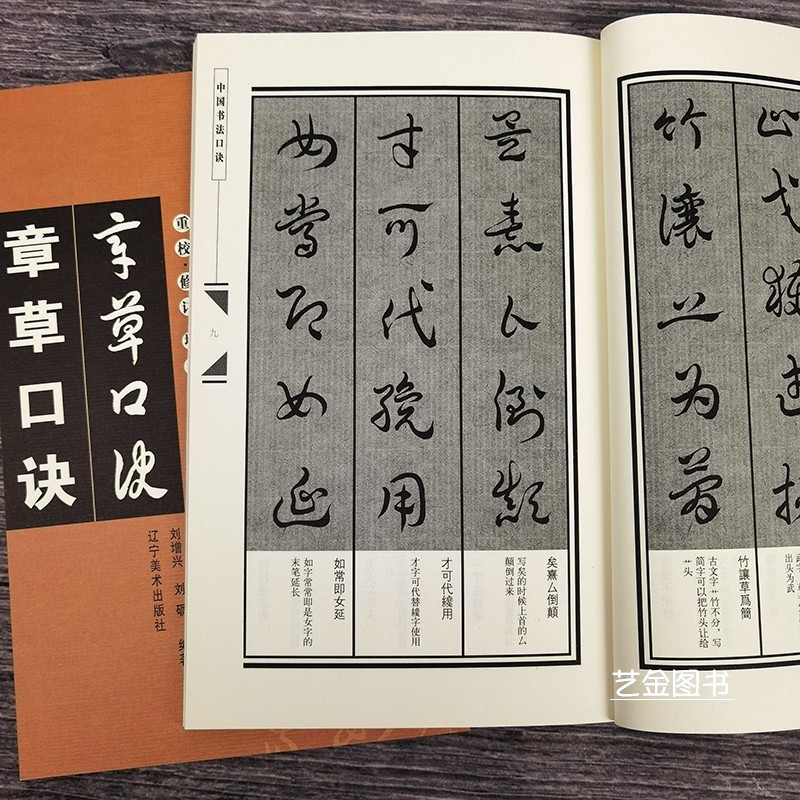 章草口诀
章草口诀
重校·修订
刘增兴 刘硕 编著
辽宁美术出版社
中国书法口诀
九
矣熹厶倒颠
写矣的时候上首的厶
颠倒过来
才可代纔用
才字可代替纔字使用
如常即女延
如字常常即是女字的
末笔延长
出头为武
竹讓草爲簡
古文字艹竹不分，写
简字可以把竹头让给
艹头
艺金图书